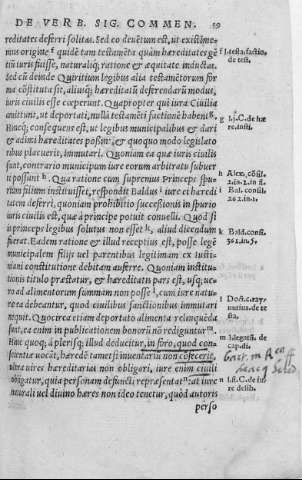 DE VERB. SIG. COMMEN. 59
reditates deferri solitas. Sed eò deuētum est, ut existime-
mus origine f quidē tam testamēta quàm hæreditates gē-
tiū iuris fuisse, naturaliq; ratione & æquitate inductas.
Sed cū deinde Quiritium legibus alia testamētorum for-
ma cōstituta sit, aliusq; hæreditatū deferendarū modus,
iuris ciuilis esse cœperunt. Quapropter qui iura Ciuilia
amittunt, ut deportati, nullā testamēti factionē habent g.
Hincq; consequens est, ut legibus municipalibus & dari
& adimi hereditates possint, & quoquo modo legislato
ribus placuerit, immutari. Quoniam ea quæ iuris ciuilis
sunt, contrario municipum iure eorum arbitratu subuer
ti possunt h. Qua ratione cùm supremus Princeps spu-
rium filium instituisset, respondit Baldus i iure ei heredi
tatem deferri, quoniam prohibitio successionis in spurio
iuris ciuilis est, quæ à principe potuit conuelli. Quod si
princeps legibus solutus non esset k, aliud dicendum
fieret. Eadem ratione & illud receptius est, posse legē
municipalem filijs uel parentibus legitimam ex Iusti-
niani constitutione debitam auferre. Quoniam institu-
tionis titulo præstatur, & hereditatis pars est, usq; ue-
rò ad alimentorum summam non posse l, cùm iure natu-
ra debeantur, quod ciuilibus sanctionibus immutari
nequit. Quocirca etiam deportato alimenta relinquēda
sunt, ea enim in publicationem bonorū nō rediguntur m.
Hac quoq; à plerisq; illud deducitur, in foro, quod con-
scientiæ uocāt, heredē tametsi inuentariū non cōfecerit,
ultra uires hæreditariæ non obligari, iure enim ciuili
obligatur, quia personam defuncti repræsentat n: at iure
naturali uel diuino hæres non ideo tenetur, quòd autoris
perso
f l. testa. factio.
de test.
g l. j. C. de hæ
re. insti.
h Alex. cōsil.
i Bal. consil.
k Bald. consi.
l Doct.
m
de
cap. di.
n C. de iu
re delib.